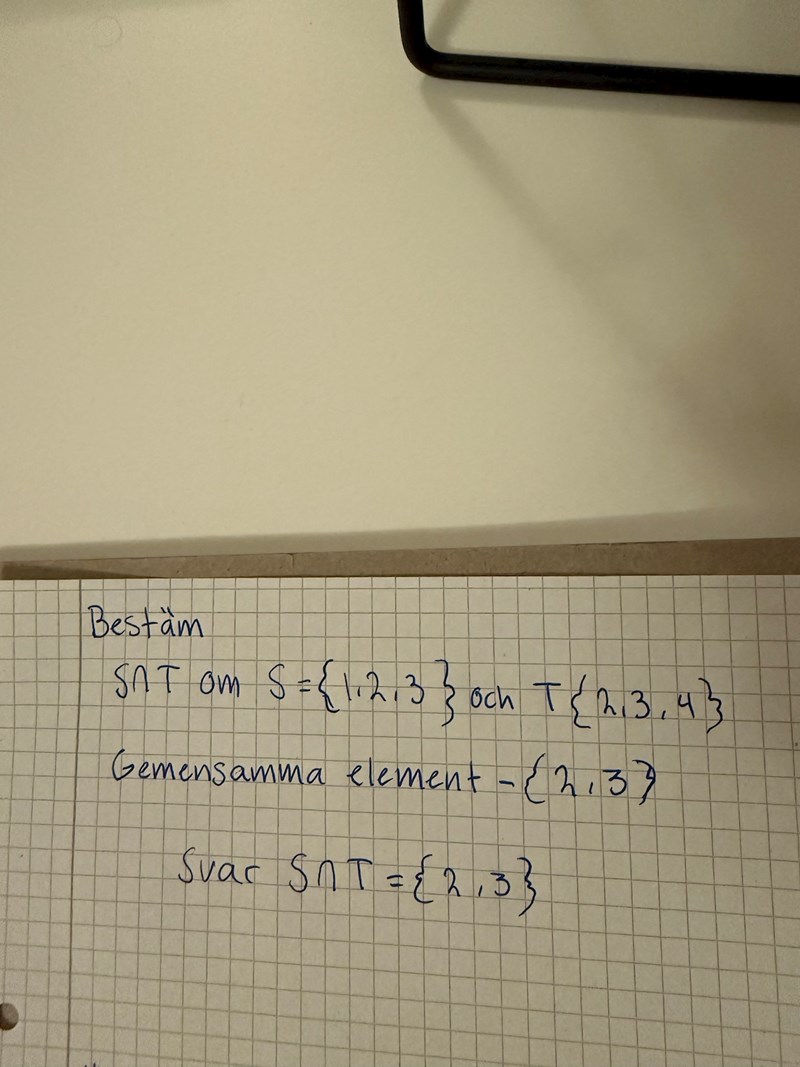 Bestäm
S∩T om S={1,2,3} och T{2,3,4}
Gemensamma element -{2,3}
Svar S∩T={2,3}